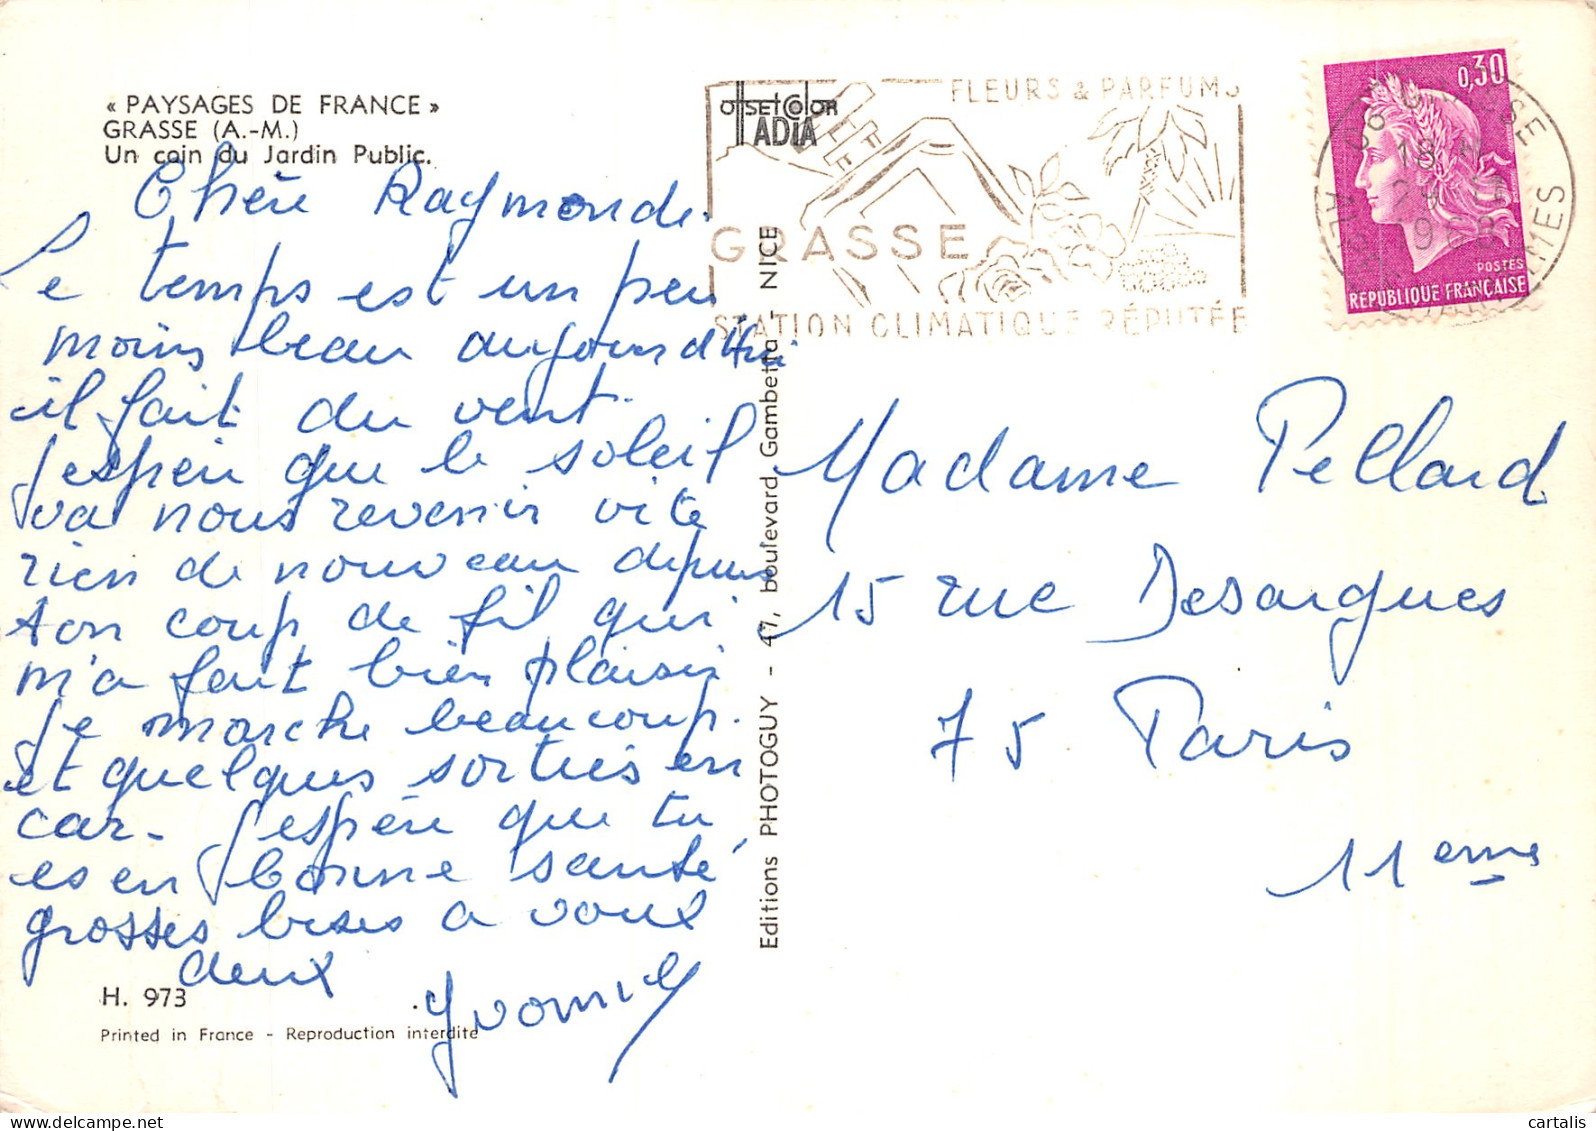 « PAYSAGES DE FRANCE »
GRASSE (A.-M.)
Un coin du Jardin Public.
Chère Raymonde.
Le temps est un peu
moins beau aujourd'hui
il fait du vent.
J'espère que le soleil
va nous revenir vite
rien de nouveau depuis
ton coup de fil qui
m'a fait bien plaisir
Je marche beaucoup.
et quelques sorties en
car. J'espère que tu
es en bonne santé,
grosses bises a vous
deux
Yvonne
H. 973
Printed in France - Reproduction interdite
Editions PHOTOGUY - 47, boulevard Gambetta - NICE
OffsetColor
ADIA
FLEURS & PARFUMS
GRASSE
STATION CLIMATIQUE RÉPUTÉE
0,30
POSTES
REPUBLIQUE FRANÇAISE
06 GRASSE
18 H
196
ALPES MARITIMES
Madame Pellard
15 rue Desargues
75 Paris
11 eme
cartalis.com